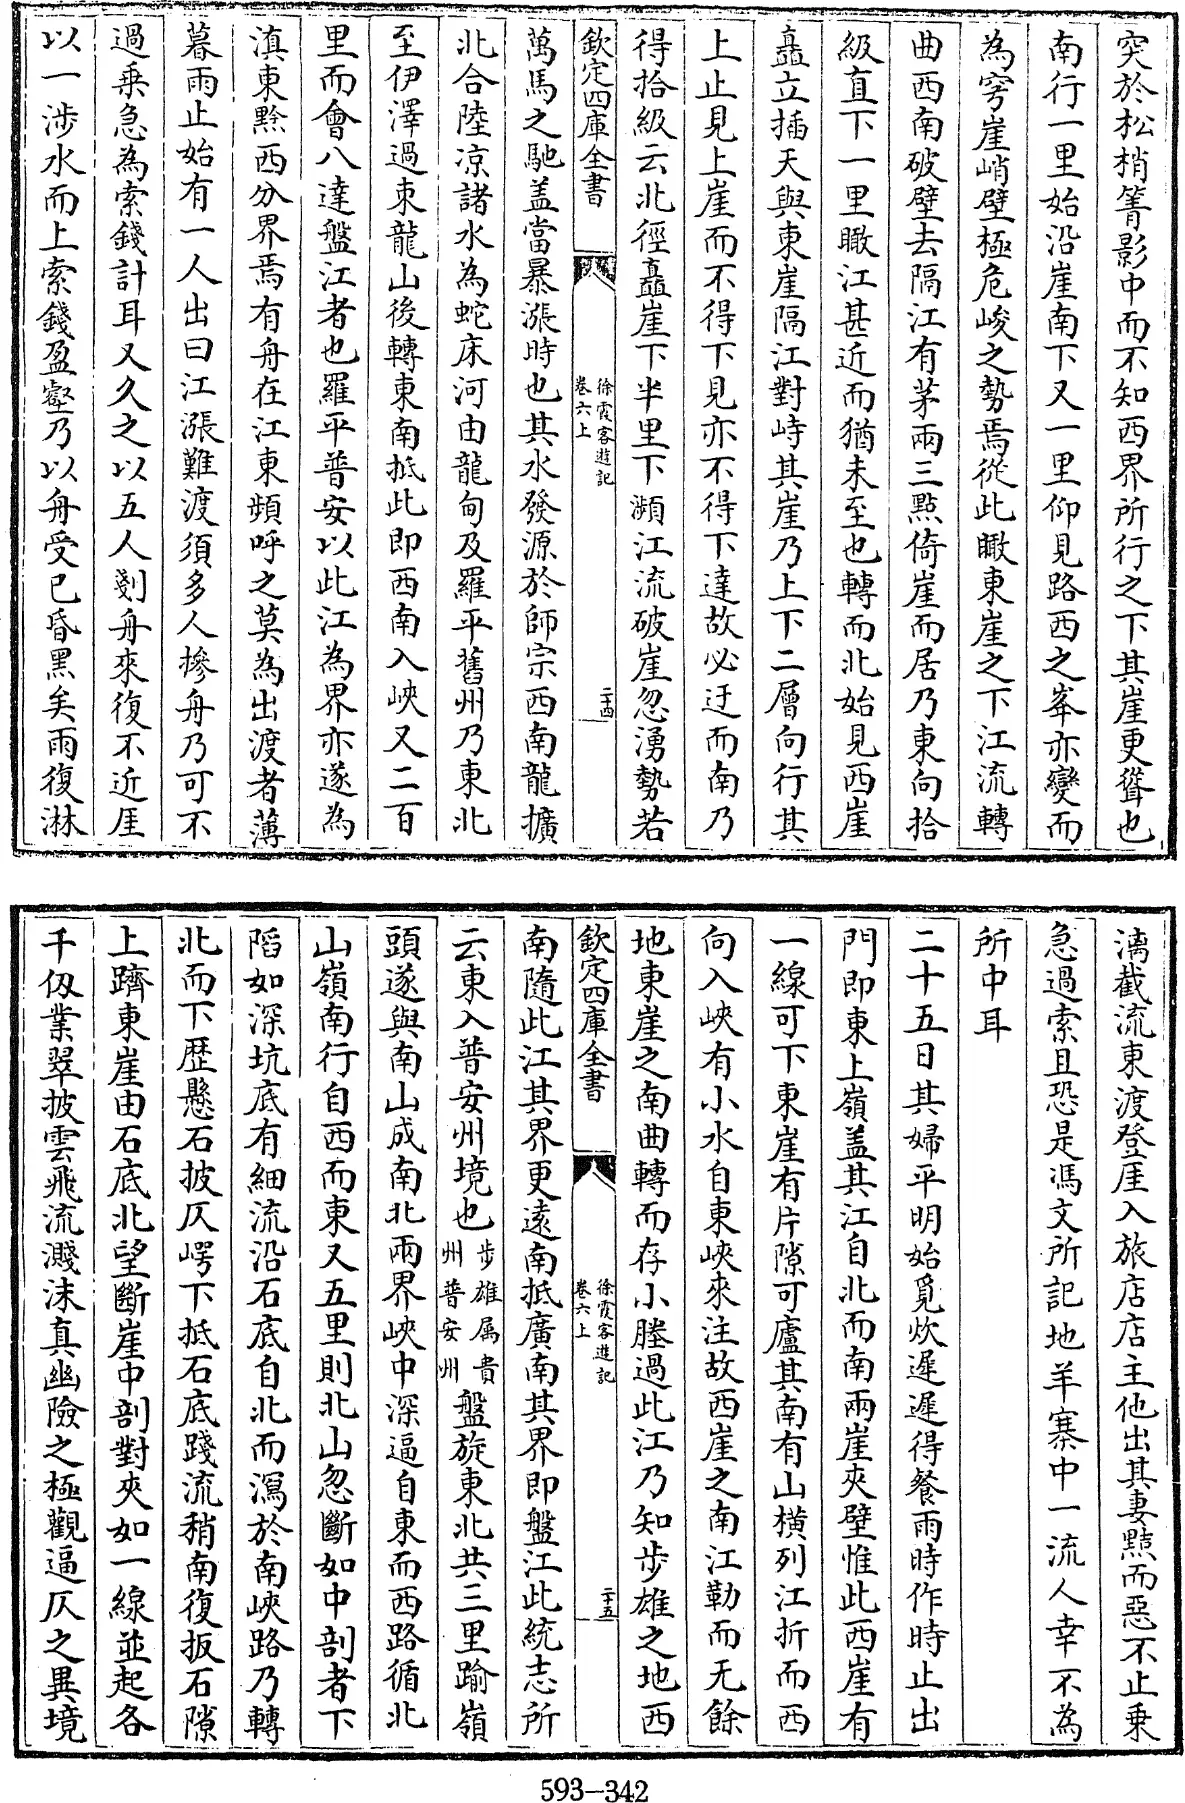 突於松梢箐影中而不知西界所行之下其崖更聳也
南行一里始沿崖南下又一里仰見路西之峯亦變而
為穹崖峭壁極危峻之勢焉從此瞰東崖之下江流轉
曲西南破壁去隔江有茅兩三點倚崖而居乃東向拾
級直下一里瞰江甚近而猶未至也轉而北始見西崖
矗立插天與東崖隔江對峙其崖乃上下二層向行其
上止見上崖而不得下見亦不得下達故必迂而南乃
得拾級云北徑矗崖下半里下瀕江流破崖忽湧勢若
欽定四庫全書
徐霞客遊記
卷六上
二十四
萬馬之馳盖當暴漲時也其水發源於師宗西南龍擴
北合陸凉諸水為蛇床河由龍甸及羅平舊州乃東北
至伊澤過束龍山後轉東南抵此即西南入峽又二百
里而會八達盤江者也羅平普安以此江為界亦遂為
滇東黔西分界焉有舟在江東頻呼之莫為出渡者薄
暮雨止始有一人出曰江漲難渡須多人撡舟乃可不
過乗急為索錢計耳又久之以五人劐舟來復不近厓
以一涉水而上索錢盈壑乃以舟受已昏黑矣雨復淋
漓截流東渡登厓入旅店店主他出其妻黠而惡不止乗
急過索且恐是馮文所記地羊寨中一流人幸不為
所中耳
二十五日其婦平明始覓炊遲遲得餐雨時作時止出
門即東上嶺盖其江自北而南兩崖夾壁惟此西崖有
一線可下東崖有片隙可廬其南有山横列江折而西
向入峽有小水自東峽來注故西崖之南江勒而无餘
地東崖之南曲轉而存小塍過此江乃知步雄之地西
欽定四庫全書
徐霞客遊記
卷六上
二十五
南隨此江其界更遠南抵廣南其界即盤江此統志所
云東入普安州境也步雄属貴州普安州盤旋東北共三里踰嶺
頭遂與南山成南北兩界峽中深逼自東而西路循北
山嶺南行自西而東又五里則北山忽斷如中剖者下
陷如深坑底有細流沿石底自北而瀉於南峽路乃轉
北而下歴懸石披仄崿下抵石底踐流稍南復扳石隙
上躋東崖由石底北望斷崖中剖對夾如一線並起各
千仞業翠披雲飛流濺沫真幽險之極觀逼仄之異境
593-342